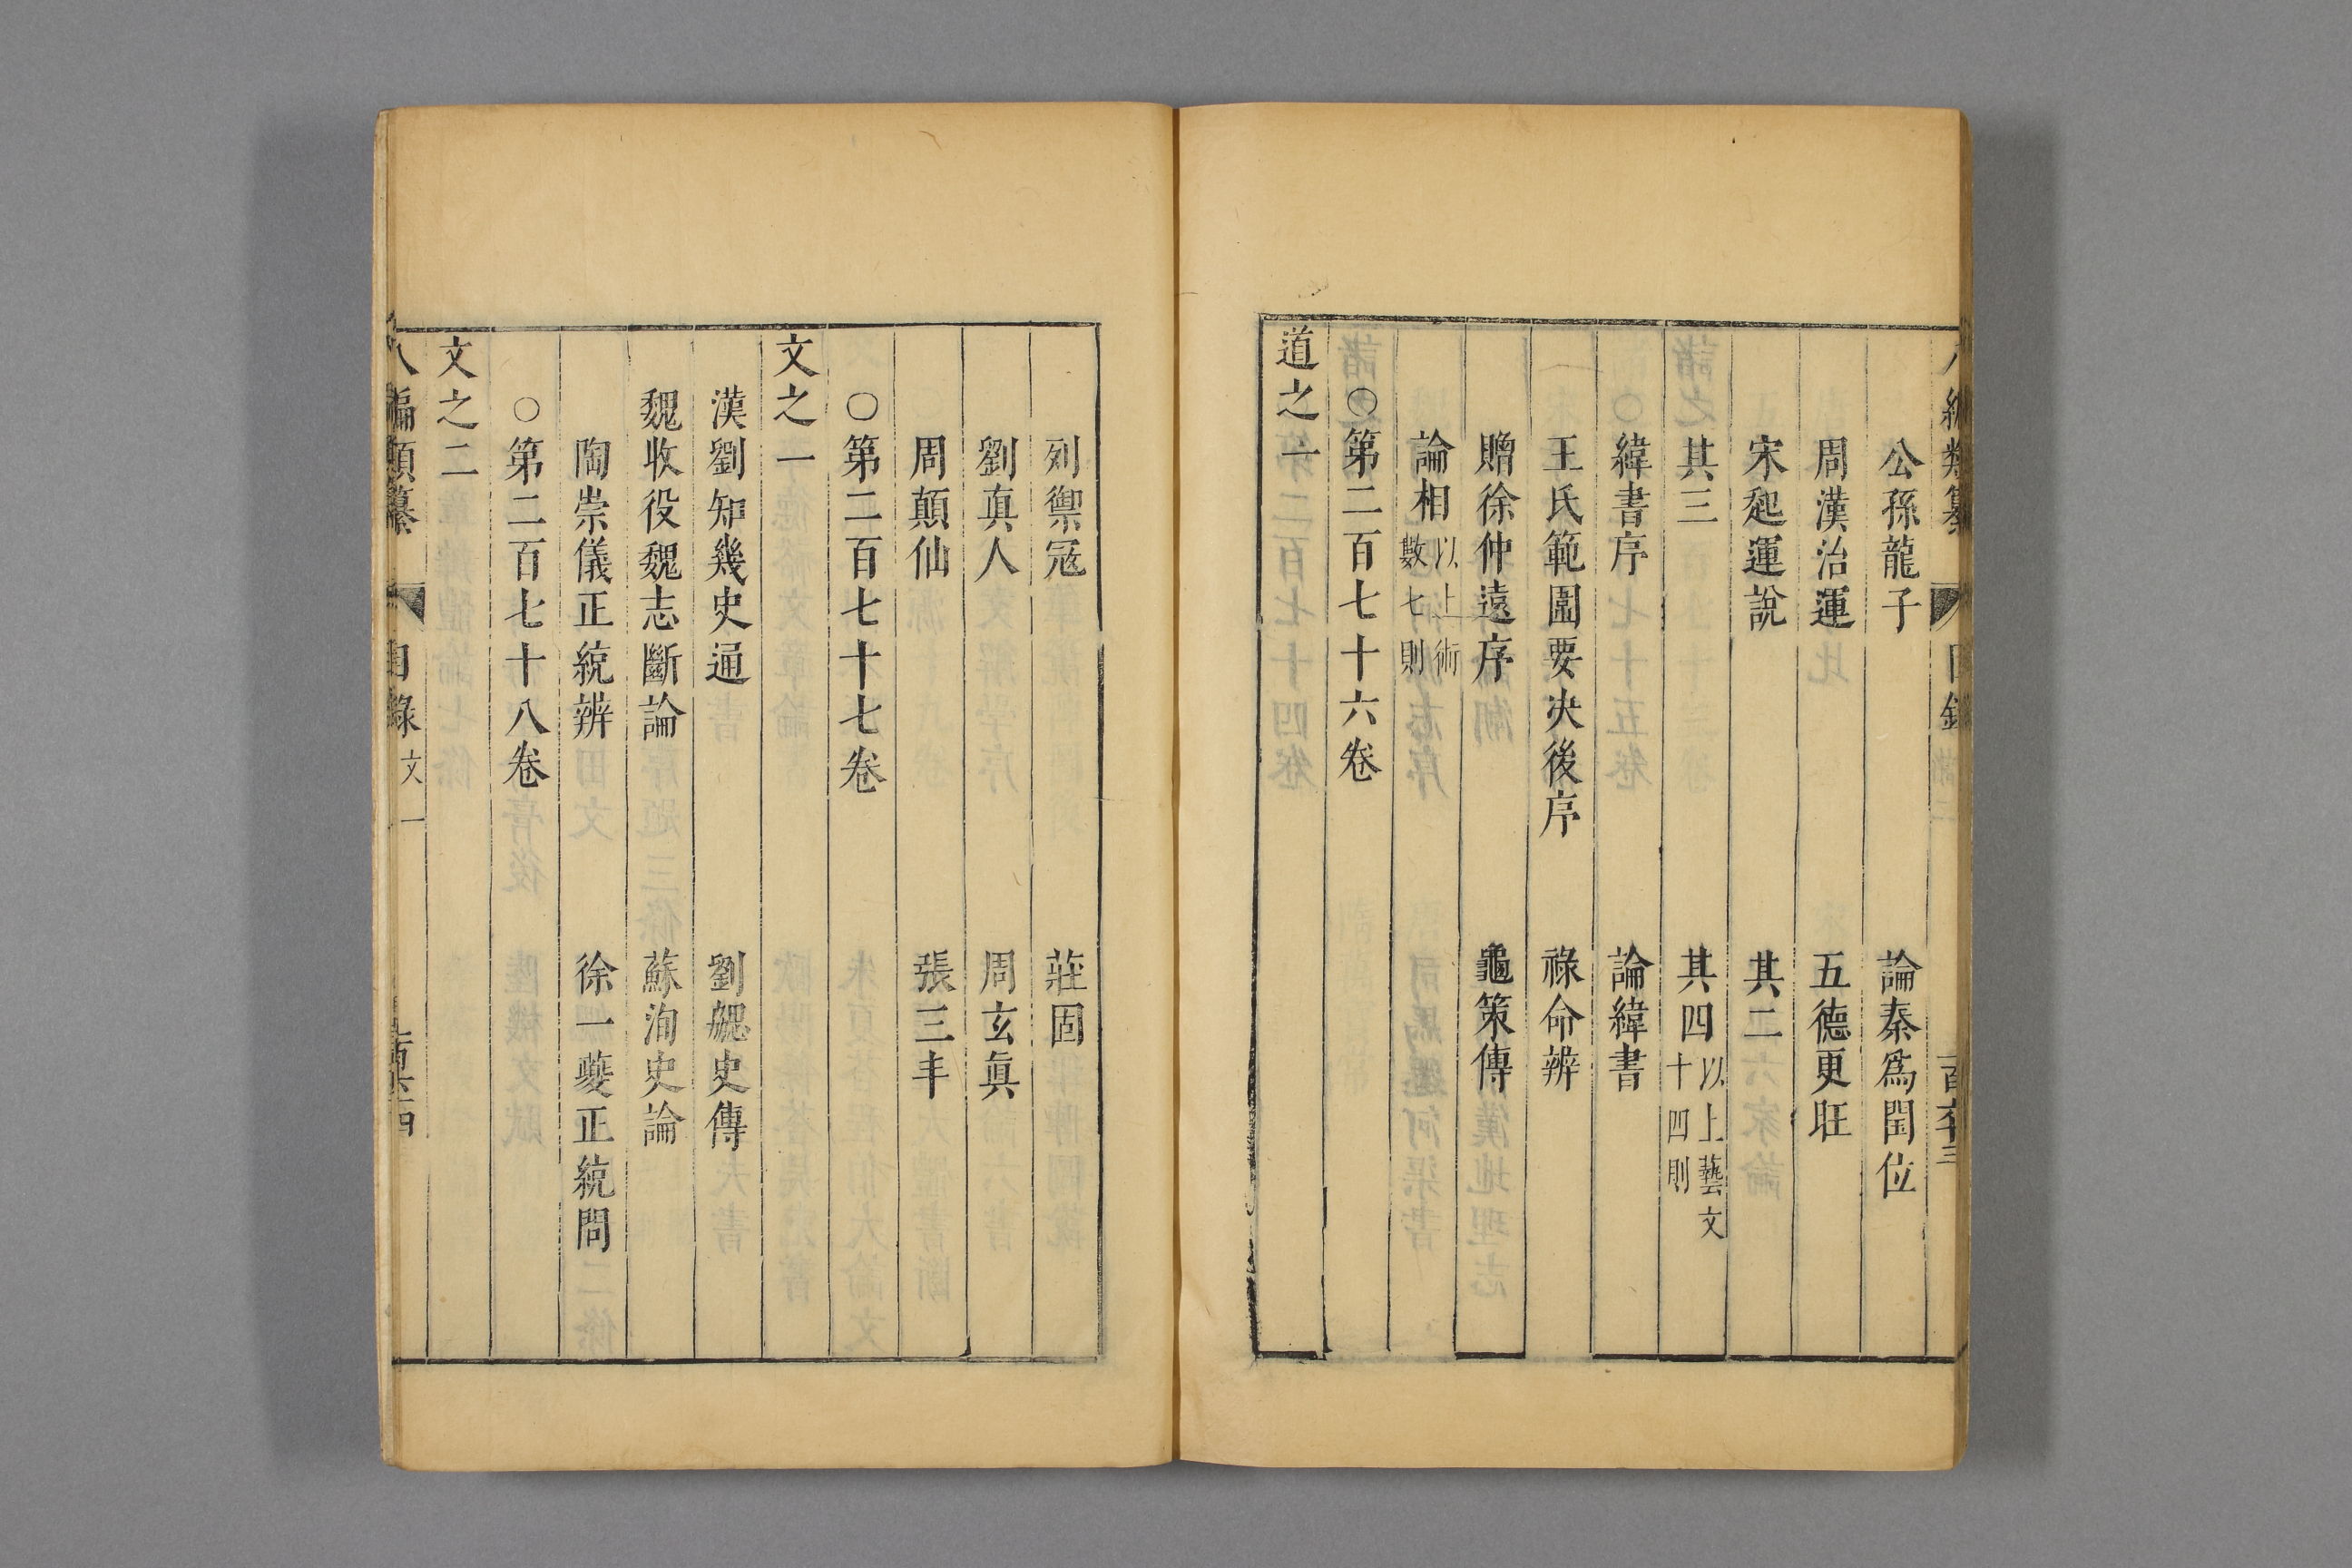 公孫龍子　論秦爲閏位
周漢治運　五德更旺
宋起運說　其二
其三　其四 以上藝文十四則
緯書序　論緯書
王氏範圍要決後序　祿命辨
贈徐仲遠序　龜策傳
論相 以上術數七則
○第二百七十六卷
道之一
列禦冦　莊固
劉真人　周玄真
周顛仙　張三丰
○第二百七十七卷
文之一
漢劉知幾史通　劉勰史傳
魏收役魏志斷論　蘇洵史論
陶崇儀正統辨　徐一夔正統問
○第二百七十八卷
文之二
八編類纂　目錄 文一